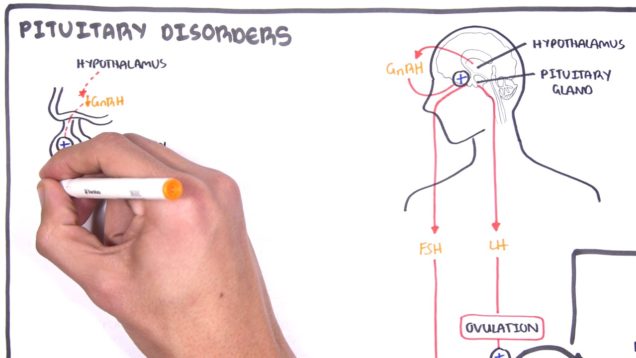 PITUITARY DISORDERS
HYPOTHALAMUS
GnRH
GnRH
HYPOTHALAMUS
PITUITARY
GLAND
FSH
LH
OVULATION